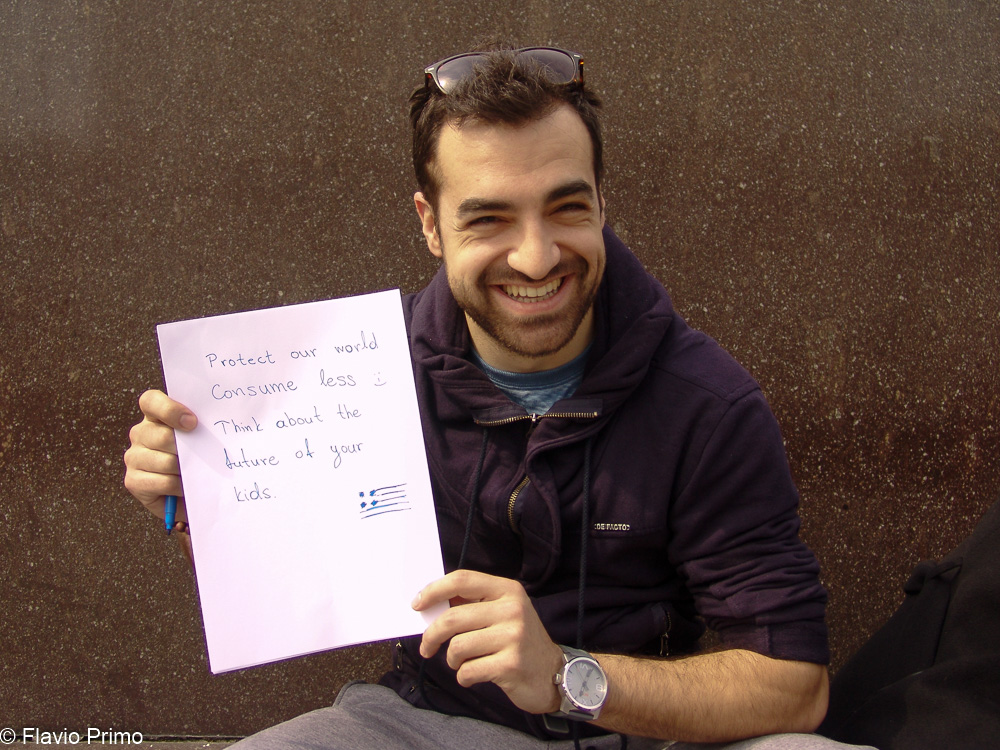 Protect our world
Consume less :)
Think about the
future of your
kids.
DE FACTO
© Flavio Primo